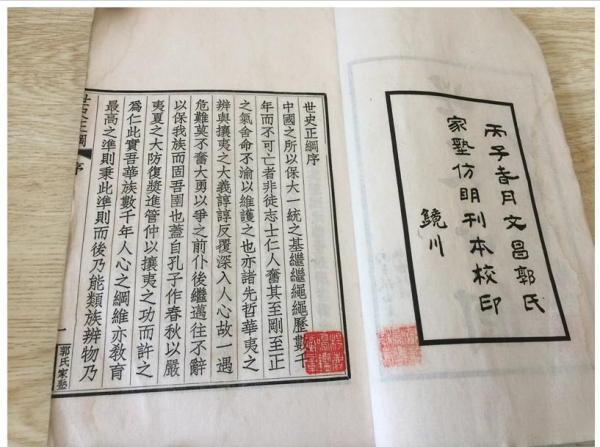 丙子春月文昌郭氏
家塾仿明刊本校印
鏡川
世史正綱序
中國之所以保大一統之基繼繼繩繩歷數千
年而不可亡者非徒志士仁人奮其至剛至正
之氣舍命不渝以維護之也亦諸先哲華夷之
辨與攘夷之大義諄諄反覆深入人心故一遇
危難莫不奮大勇以爭之前仆後繼邁往不辭
以保我族而固吾圉也蓋自孔子作春秋以嚴
夷夏之大防復奬進管仲以攘夷之功而許之
為仁此實吾華族數千年人心之綱維亦教育
最高之準則秉此準則而後乃能類族辨物乃
世史正綱 序 一 郭氏家塾